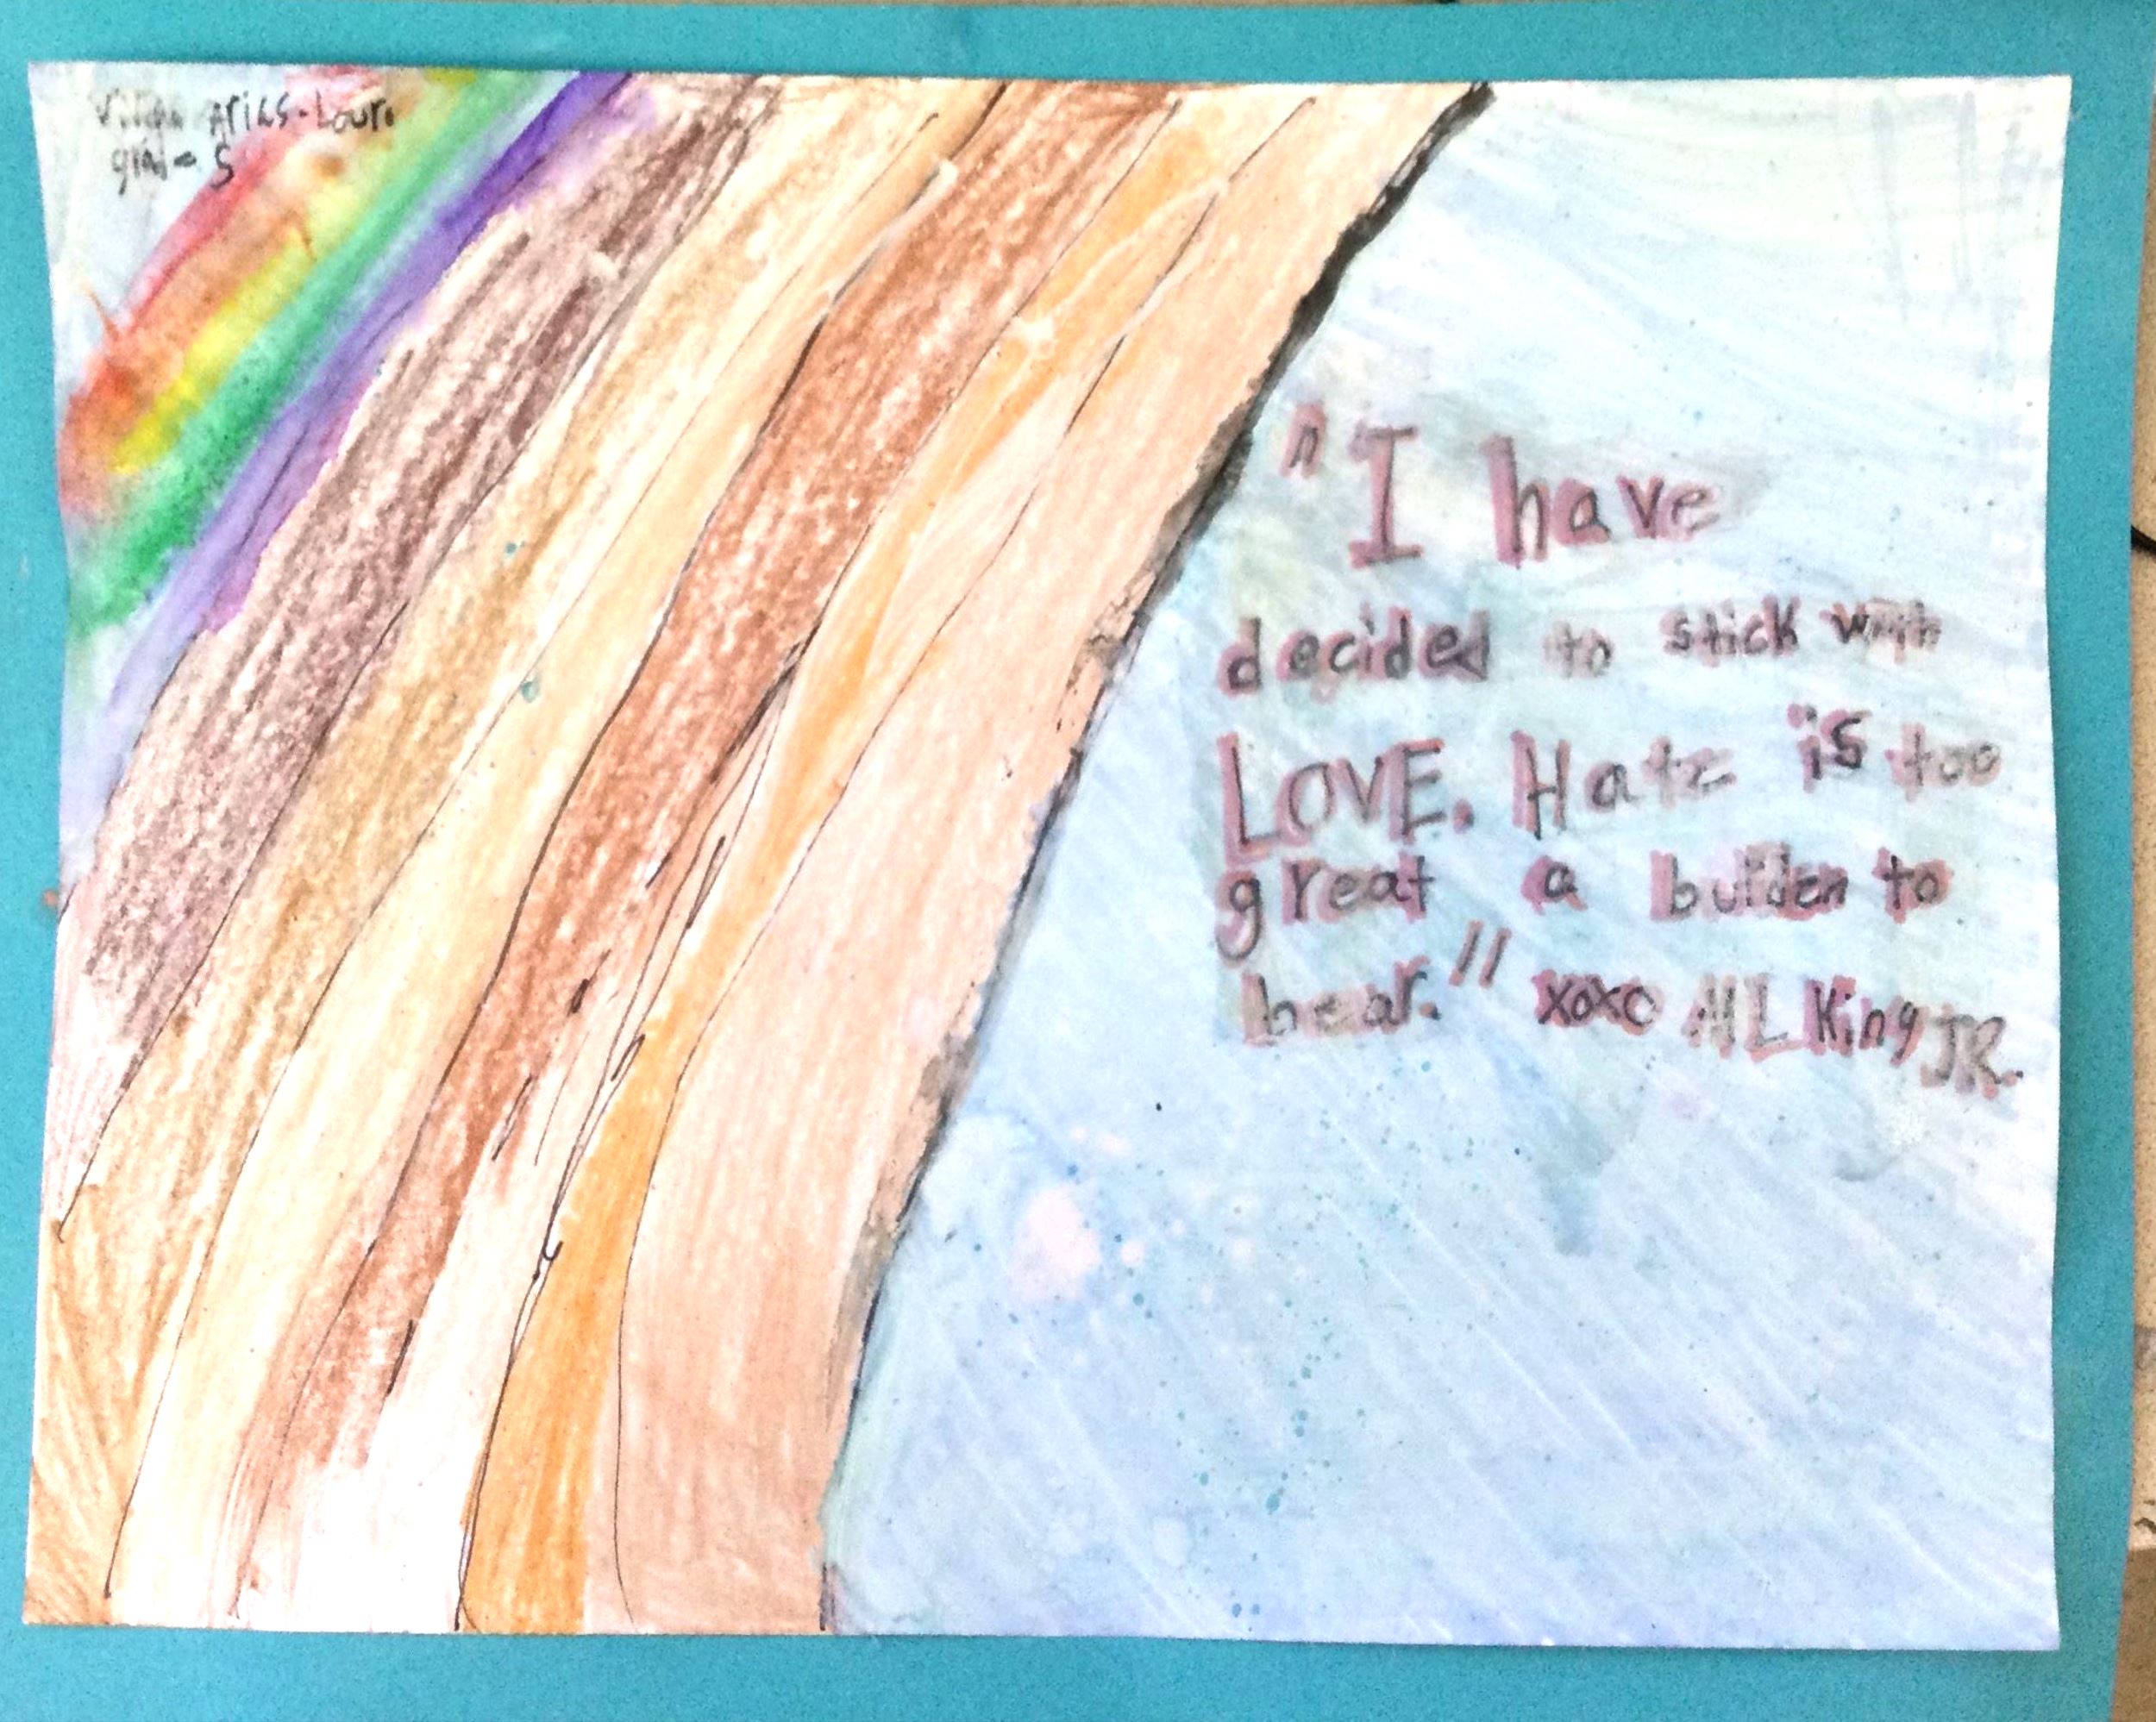 Arias-Louro
grade 5
"I have
decided to stick with
LOVE. Hate is too
great a burden to
bear." xoxo M L King JR.